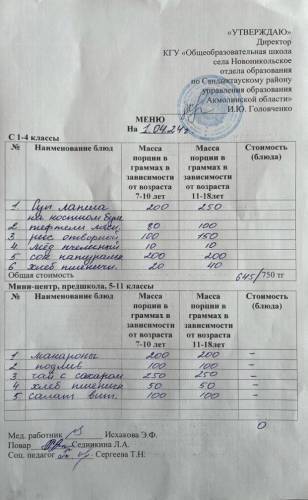 «УТВЕРЖДАЮ»
Директор
КГУ «Общеобразовательная школа
села Новоникольское
отдела образования
по Сандыктаускому району
управления образования
Акмолинской области»
И.Ю. Головченко
МЕНЮ
На 1.04.24г
С 1-4 классы
№ Наименование блюд Масса порции в граммах в зависимости от возраста 7-10 лет Масса порции в граммах в зависимости от возраста 11-18лет Стоимость (блюда)
1 Суп лапша 200 250
на костном бул.
2 тефтели мясн. 80 100
3 рис отворной 100 150
4 мёд пчелиный 10 10
5 сок натурал 200 200
6 хлеб пшеничн. 20 40
Общая стоимость 645/750 тг
Мини-центр, предшкола, 5-11 классы
№ Наименование блюд Масса порции в граммах в зависимости от возраста 7-10 лет Масса порции в граммах в зависимости от возраста 11-18лет Стоимость (блюда)
1 макароны 200 200 –
2 подлив 100 100 –
3 чай с сахаром 250 250 –
4 хлеб пшенич 50 50 –
5 салат вит. 100 100 –
0
Мед. работник Исхакова Э.Ф.
Повар Седникина Л.А.
Соц. педагог Сергеева Т.Н.